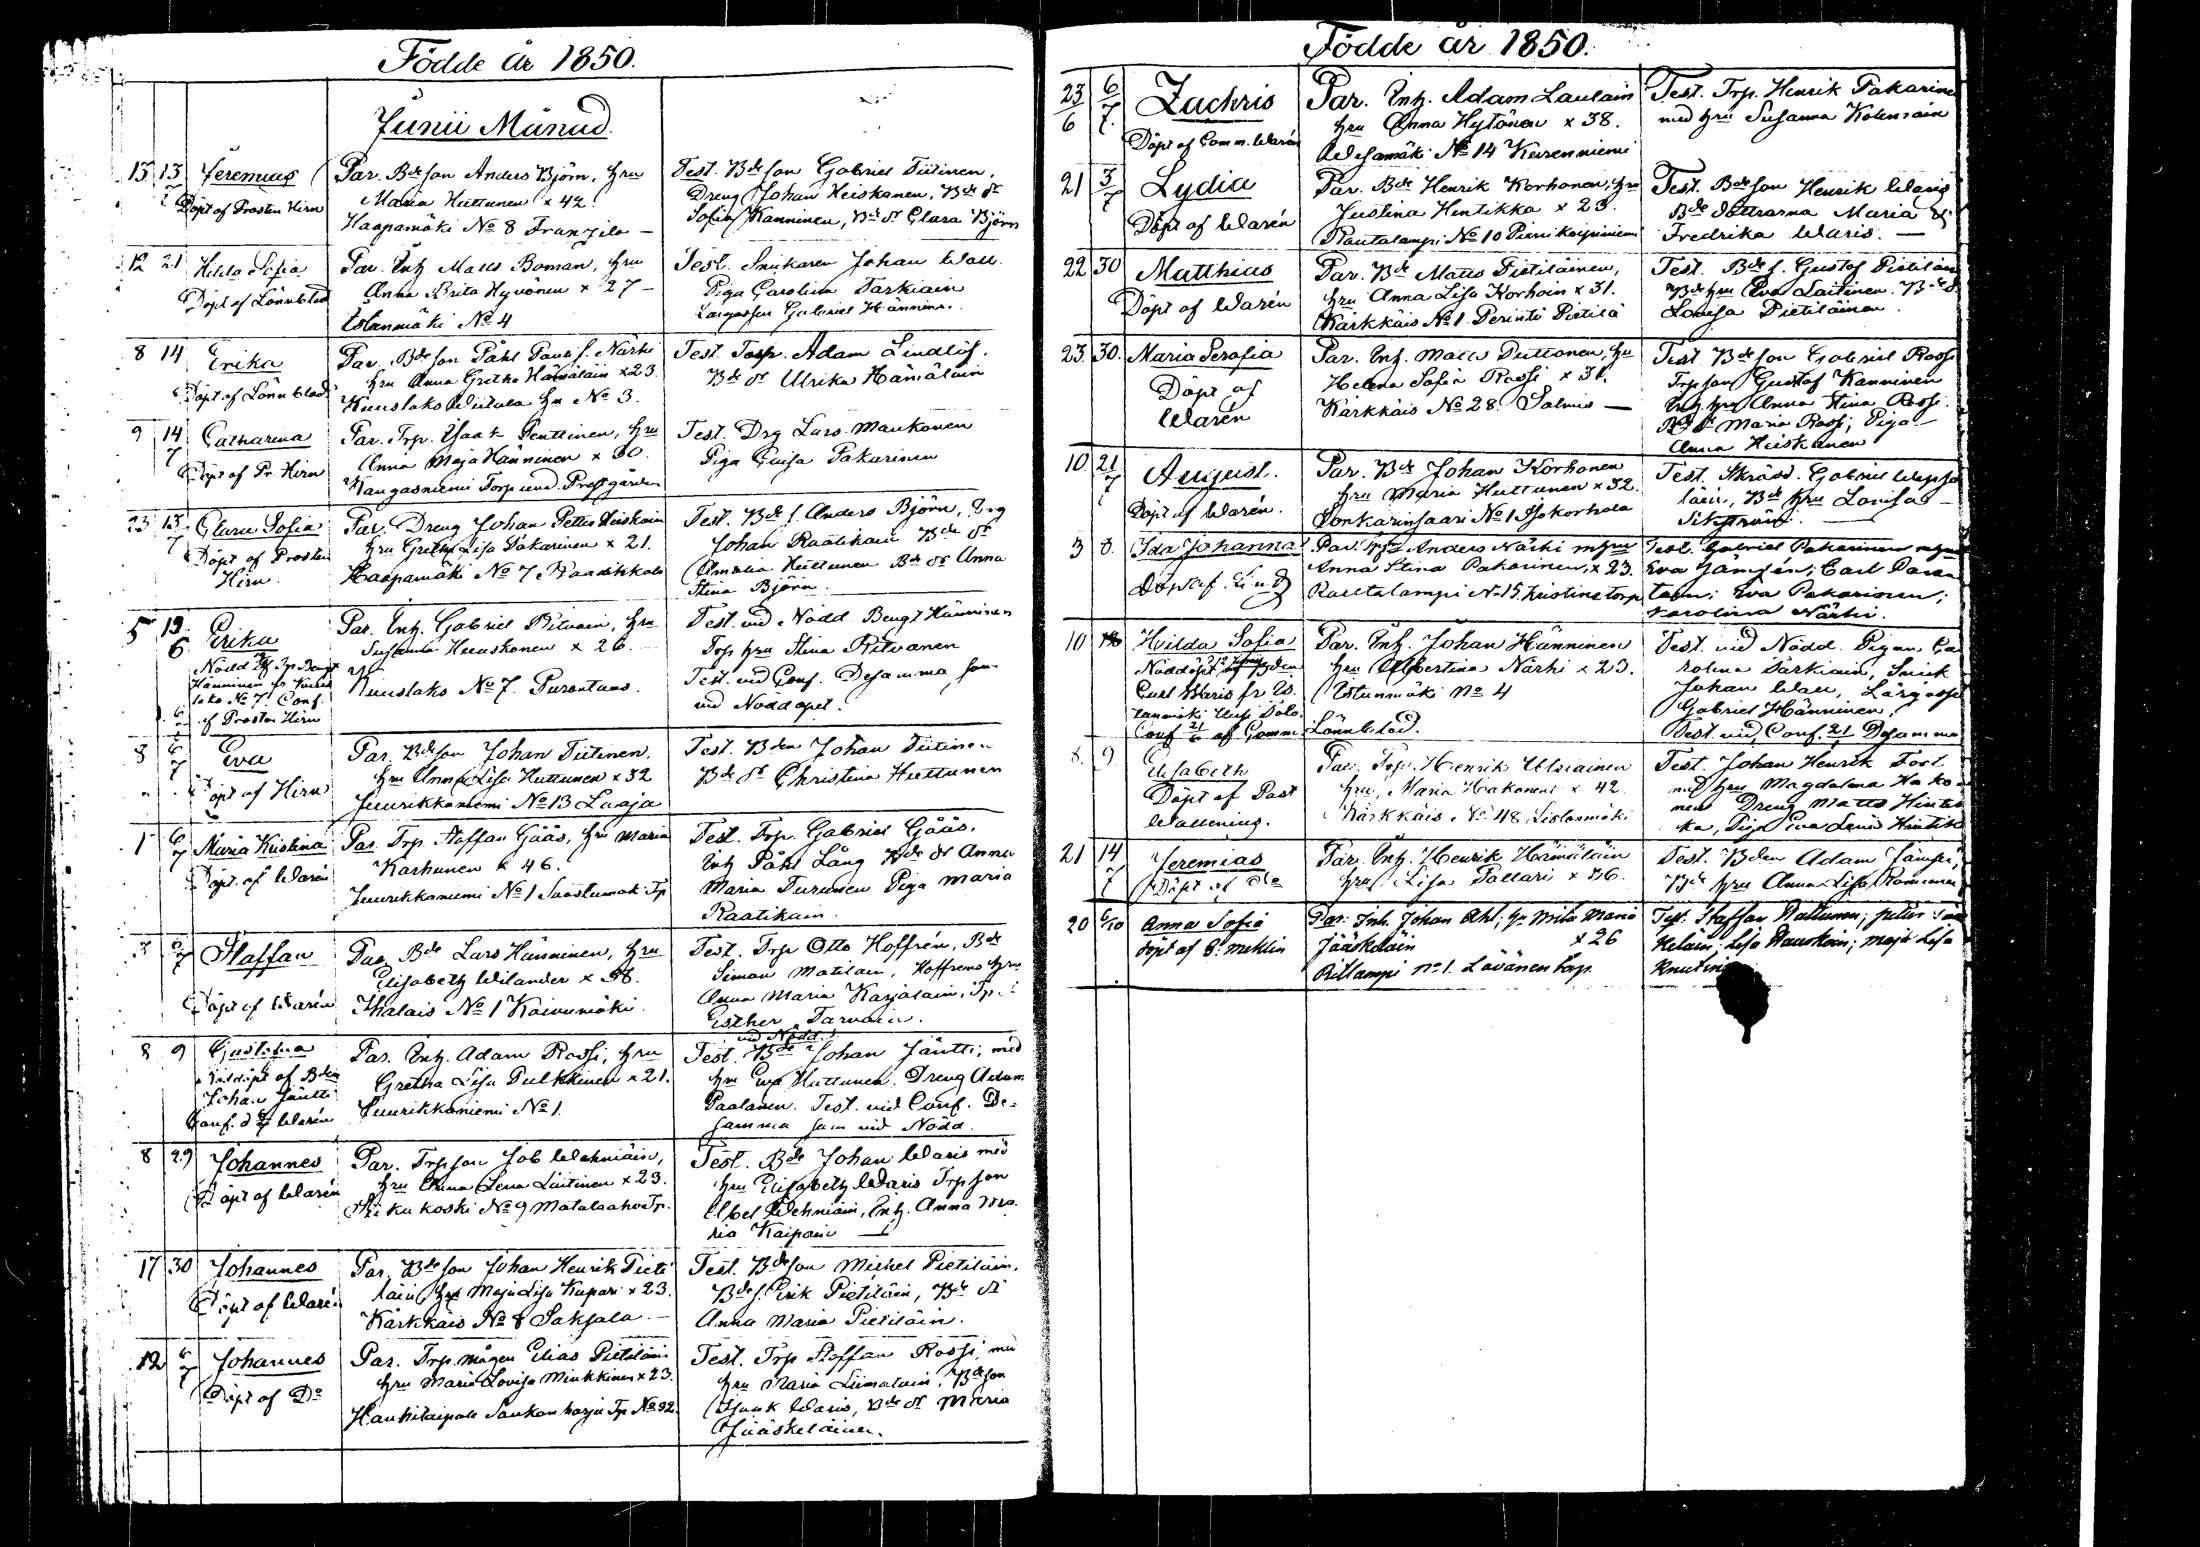 Födde År 1850.
Junii Månad.
13 13/7 Jeremias Par. Bdeson Anders Björn, hru Test. Bdeson Gabriel Tiitinen,
Döpt af Prosten Hirn Maria Huttunen x 42. Dreng Johan Heiskanen, Bde dr
Haapamäki No 8 Franzila — Sofia Kanninen, Bde dr Clara Björn
12 21 Hilda Sofia Par. Inh. Matts Boman, hru Test. Snikaren Johan Wall
Döpt af Lönnblad Anna Brita Hyvönen x 27 — Piga Carolina Tarkiain
Istunmäki No 4 Lärgossen Gabriel Hänninen.
8 14 Erika Par. Bdeson Påhl Paulis. Närhi Test. Torp. Adam Lindlöf.
Döpt af Lönnblad hru Anna Gretha Hämäläin x 23 Bde dr Ulrika Hämäläin
Kuuslaks Wiitala No 3.
9 14/7 Catharina Par. Trp. Isaak Penttinen, hru Test. Drg Lars Maukonen
Döpt af Pr Hirn Anna Maja Hänninen x 30. Piga Caisa Pakarinen
Kangasniemi Torp und. Prestgården
23 13/7 Clara Sofia Par. Dreng Johan Petter Heiskain Test. Bde s. Anders Björn, Drg
Döpt af Prosten hru Gretha Lisa Pakarinen x 21. Johan Raatikain Bde dr
Hirn Haapamäki No 7 Raatikkala Amalia Huttunen Bde dr Anna
Stina Björn.
5 19/6 Erika Par. Inh. Gabriel Ritvain, hru Test. vid Nödd Bengt Hänninen
Susanna Huuskonen x 26 Trp hru Stina Ritvanen
Kuuslaks No 7. Purontaus. Test. vid Conf. Desamma som
laks No 7. Conf. vid Nöddopet.
af Prosten Hirn
8 6/7 Eva Par. Bdeson Johan Tiitinen. Test. Bden Johan Tiitinen
Döpt af Hirn hru Anna Lisa Huttunen x 32 Bde dr Christina Huttunen
Juurikkaniemi No 13 Laaja
1 6/7 Maria Kristina Par. Trp. Staffan Gåås, hru Maria Test. Trp. Gabriel Gåås.
Döpt. af Warén Karhunen x 46. Inh Påhl Lång Bde dr Anna
Juurikkaniemi No 1 Trp Maria Turunen Piga Maria
Raatikain.
3 6/7 Staffan Par. Bde Lars Hänninen, hru Test. Trp Otto Hoffrén, Bde
Elisabeth Wilander x 38. Simon Matilain, Hoffrens hru
Döpt af Warén Ihalais No 1 Koivumäki. Anna Maria Karjalain, Tp.
Esther Tarvain.
8 9 Gustava Par. Inh. Adam Rossi, hru Test. vid Nödd. Bde Johan Jäntti, med
Nöddöpt af Bden Gretha Lisa Pulkkinen x 21. hru Eva Huttunen. Dreng Adam
Johan Jäntti Juurikkaniemi No 1. Paalanen. Test. vid Conf. De-
Conf. d Warén samma som vid Nödd.
8 29 Johannes Par. Trpson Job Wehniäin, Test. Bde Johan Waris med
Döpt af Warén hru Anna Lena Laitinen x 23. hru Elisabeth Waris Trpson
No 9 Matalaaho Tp. Abel Wehniäin, Inh. Anna Ma-
ria Kaipain —
17 30 Johannes Par. Bdeson Johan Henrik Pieti- Test. Bdeson Michel Pietiläin,
Döpt af Warén läin hru Maja Lisa Kupari x 23. Bde s. Erik Pietiläin, Bde dr
Kärkkäis No 8 Saksala — Anna Maria Pietiläin.
12 6/7 Johannes Par. Trp. mågen Elias Pietiläin Test. Trp Staffan Rossi, med
Döpt af Do hru Maria Lovisa Minkkinen x 23. hru Maria Liimatain, Bdeson
Hankitaipale Saukonharju Tp No 32. Isaak Waris, Bde dr Maria
Jääskeläinen.
Födde år 1850.
23/6 6/7 Zachris Par. Inh. Adam Laulain Test. Trp. Henrik Pakarinen
Döpt af Comm. Warén hru Anna Hytönen x 38. med hru Susanna Kolemain
Wesamäki No 14 Keurenniemi
21 3/7 Lydia Par. Bde Henrik Korhonen, hru Test. Bdeson Henrik Waris
Döpt af Warén Justina Hintikka x 23. Bde döttrarna Maria &
Rautalampi No 10 Fredrika Waris. —
22 30 Matthias Par. Bde Matts Pietiläinen, Test. Bde s. Gustaf Pietiläin
Döpt af Warén hru Anna Lisa Korhoin x 31. Bde hru Eva Laitinen. Bde d.
Kärkkäis No 1 Perintö Pietilä Lovisa Pietiläinen.
23 30. Maria Serafia Par. Inh. Matts Puttonen, hru Test Bdeson Gabriel Rossi
Döpt af Helena Sofia Rossi x 31. Trpson Gustaf Kanninen
Warén Kärkkäis No 28. Salmis — Inh. hru Anna Stina Rossi.
Bde dr Maria Rossi, Piga
Anna Heiskanen
10 21/7 August. Par. Bde Johan Korhonen Test. Skrädd. Gabriel Wepsä-
Döpt af Warén. hru Maria Huttunen x 32. läin, Bde hru Lovisa
Sonkarinsaari No 1 Isokorhola Sikström. —
3 8. Ida Johanna Par. Anders Närhi m hru Test. Gabriel Pakarinen m hru
Döpt af Lind Anna Stina Pakarinen, x 23. Eva Jämsén; Carl Paran-
Rautalampi No 15 Kristinetorp tain; Eva Pakarinen;
Karolina Närhi.
10 Hilda Sofia Par. Inh. Johan Hänninen Test. vid Nödd. Pigan Ca-
Nöddöpt hru Albertina Närhi x 23. rolina Tarkiain, Snick
Carl Waris fr Is- Istunmäki No 4 Johan Wall, Lärgosse
tunmäki Gabriel Hänninen.
Conf 21/6 af Comm. Lönnblad. Test. vid Conf. 21 Desamma
8. 9 Elisabeth Par. Trp. Henrik Ulriainen Test. Johan Henrik Fort
Döpt af Past hru, Maria Hakonen x 42. med hru Magdalena Hako-
Wallening. Kärkkäis No 48 Listonmäki nen Dreng Matts Hintik-
ka, Piga Eva Lena Hintik
21 14/7 Jeremias Par. Inh. Henrik Hämäläin Test. Bden Adam Jämsä,
Döpt af do hru Lisa Pallari x 26. Bde hru Anna Lisa
20 6/10 Anna Sofia Par: Inh. Johan Ahl; hu Brita Maria Test. Staffan Rattunen; Petter Jääs-
döpt af B. Mehlin Jääskeläin x 26 keläin; Lisa Hauskain; Maja Lisa
Pitlampi No 1. Lövänen torp. Knuutin